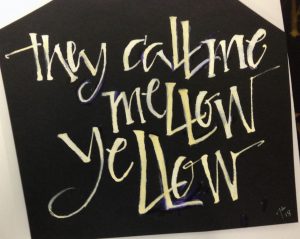 they call me
mellow
yellow